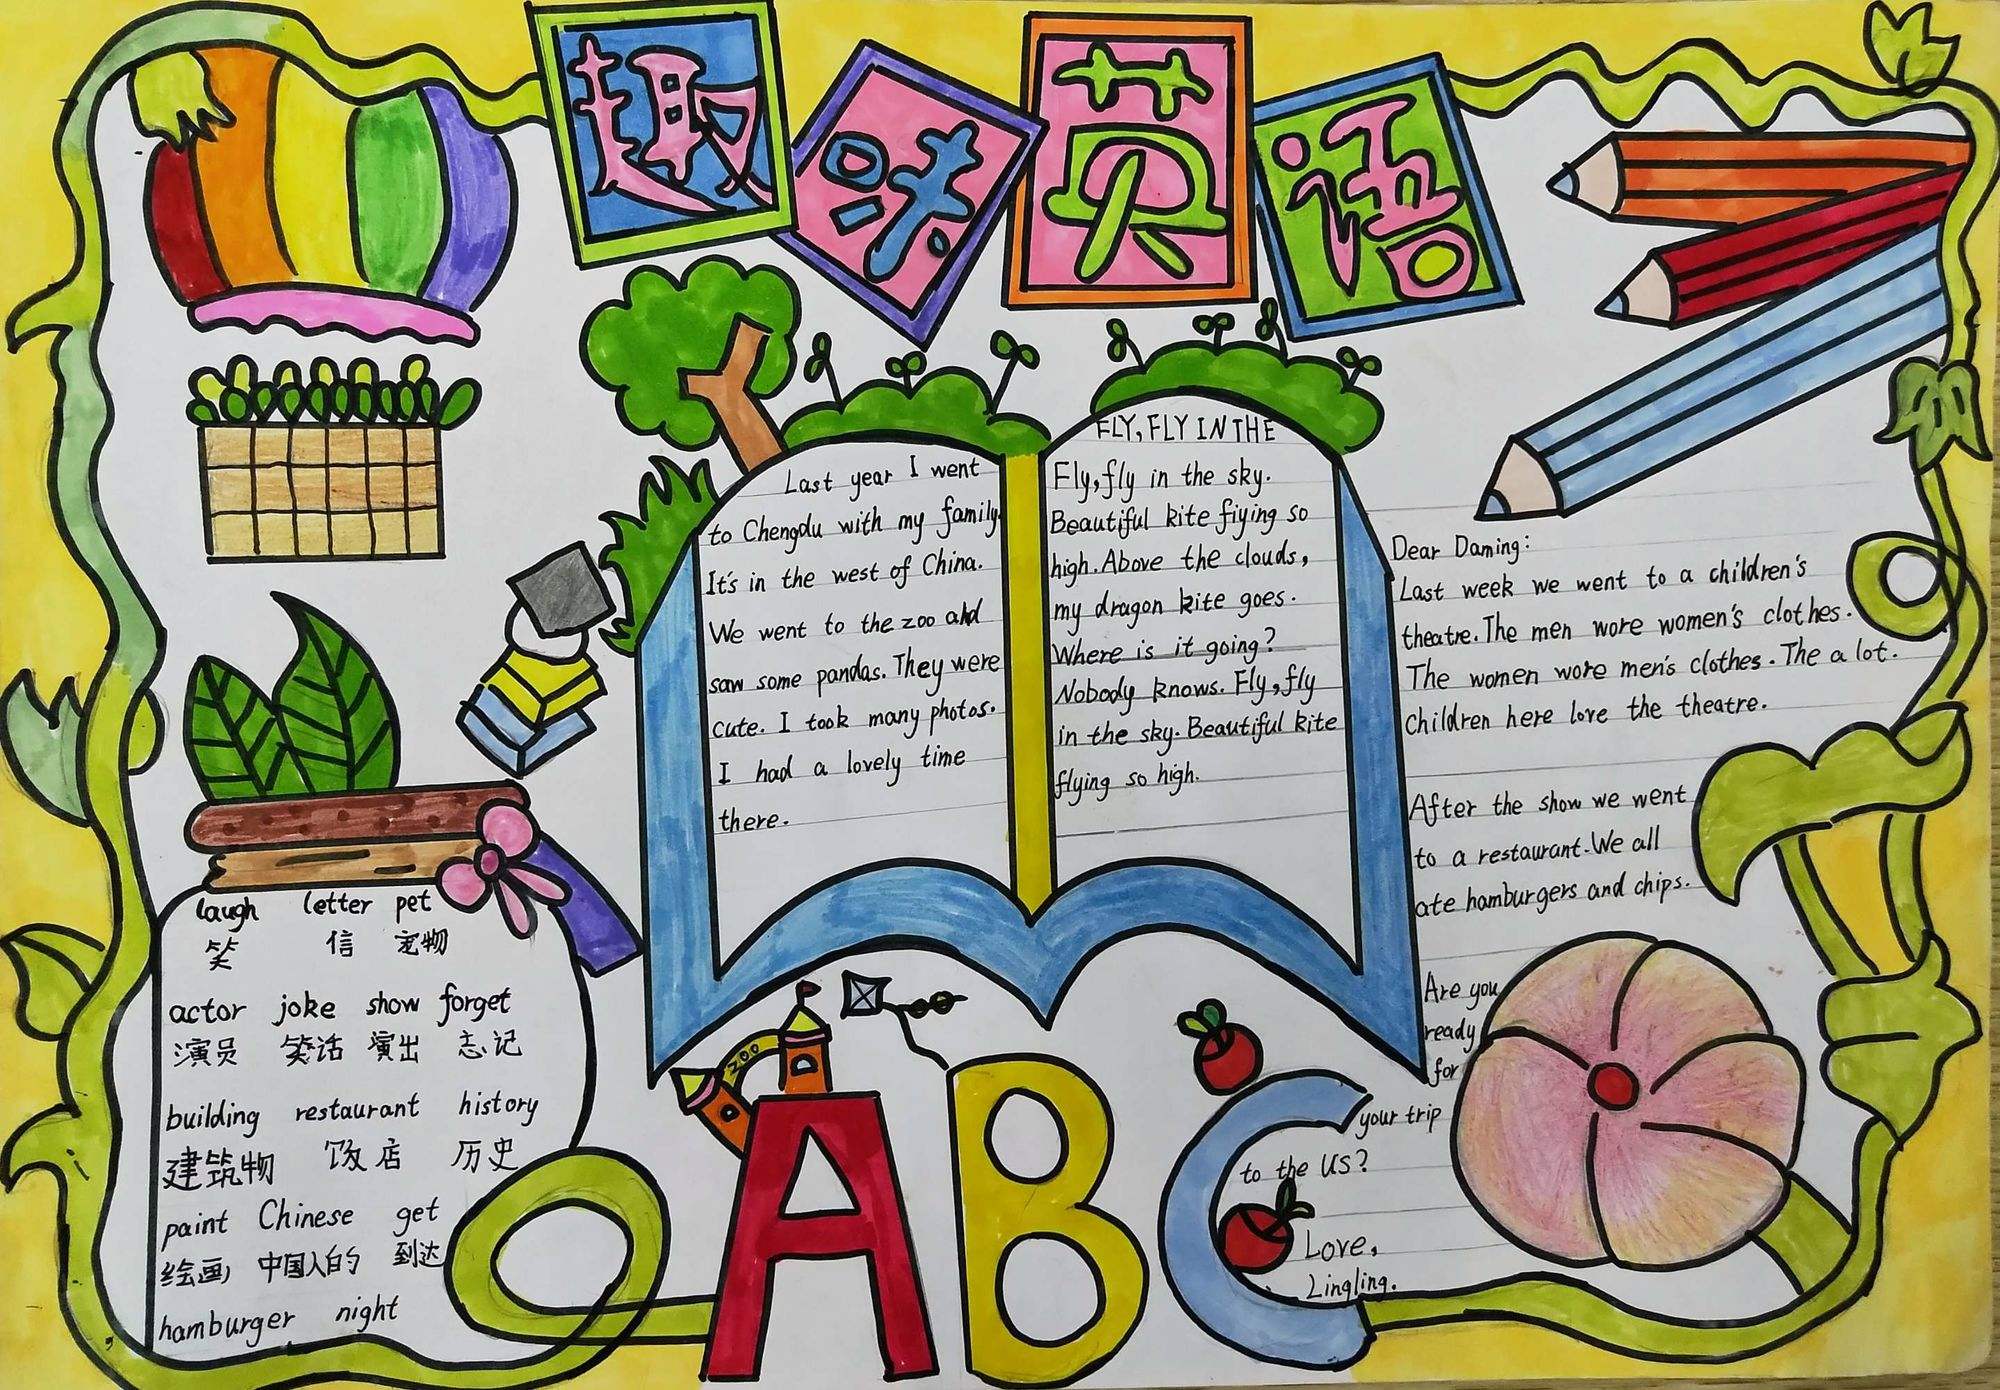 趣味英语
Last year I went
to Chengdu with my family.
It's in the west of China.
We went to the zoo and
saw some pandas. They were
cute. I took many photos.
I had a lovely time
there.
FLY, FLY IN THE
Fly, fly in the sky.
Beautiful kite fiying so
high. Above the clouds,
my dragon kite goes.
Where is it going?
Nobody knows. Fly, fly
in the sky. Beautiful kite
flying so high.
Dear Daming:
Last week we went to a children's
theatre. The men wore women's clothes.
The women wore men's clothes. The a lot.
Children here love the theatre.
After the show we went
to a restaurant. We all
ate hamburgers and chips.
Are you
ready
for
your trip
to the US?
Love,
Lingling.
laugh letter pet
笑 信 宠物
actor joke show forget
演员 笑话 演出 忘记
building restaurant history
建筑物 饭店 历史
paint Chinese get
绘画 中国人的 到达
hamburger night
ZOO
ABC